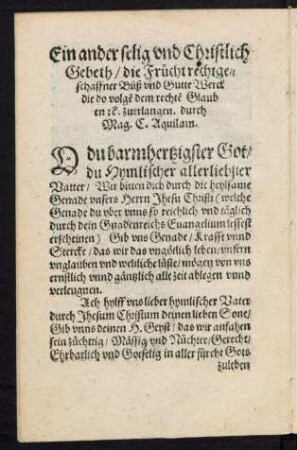 Ein ander selig vnd Christlich
Gebeth / die Frücht rechtge-
schaffner Büß vnd Gutte Werck
die do volgẽ dem rechtẽ Glaub
en ꝛc. zuerlangen. durch
Mag. C. Aquilam.
O du barmhertzigster Got /
du Hymlischer allerliebster
Vatter / Wir bitten dich durch die heylsame
Genade vnsers Herrn Jhesu Christi (welche
Genade du vber vnns so reichlich vnd täglich
durch dein Gnadenreichs Euangelium lessest
erscheinen) Gib vns Genade / Krafft vnnd
Stercke / das wir das vngötlich leben / vnsern
vnglauben vnd weltliche lüste / mögen von vns
ernstlich vnnd gäntzlich allt zeit ablegen vnnd
verleugnen.
Ach hylff vns lieber hymlischer Vater
durch Jhesum Christum deinen lieben Sone /
Gib vnns deinen H. Geyst / das wir anfahen
fein züchttig / Mässig vnd Nüchter / Gerecht /
Ehrbarlich vnd Gotselig in aller fürcht Gots
zuleben